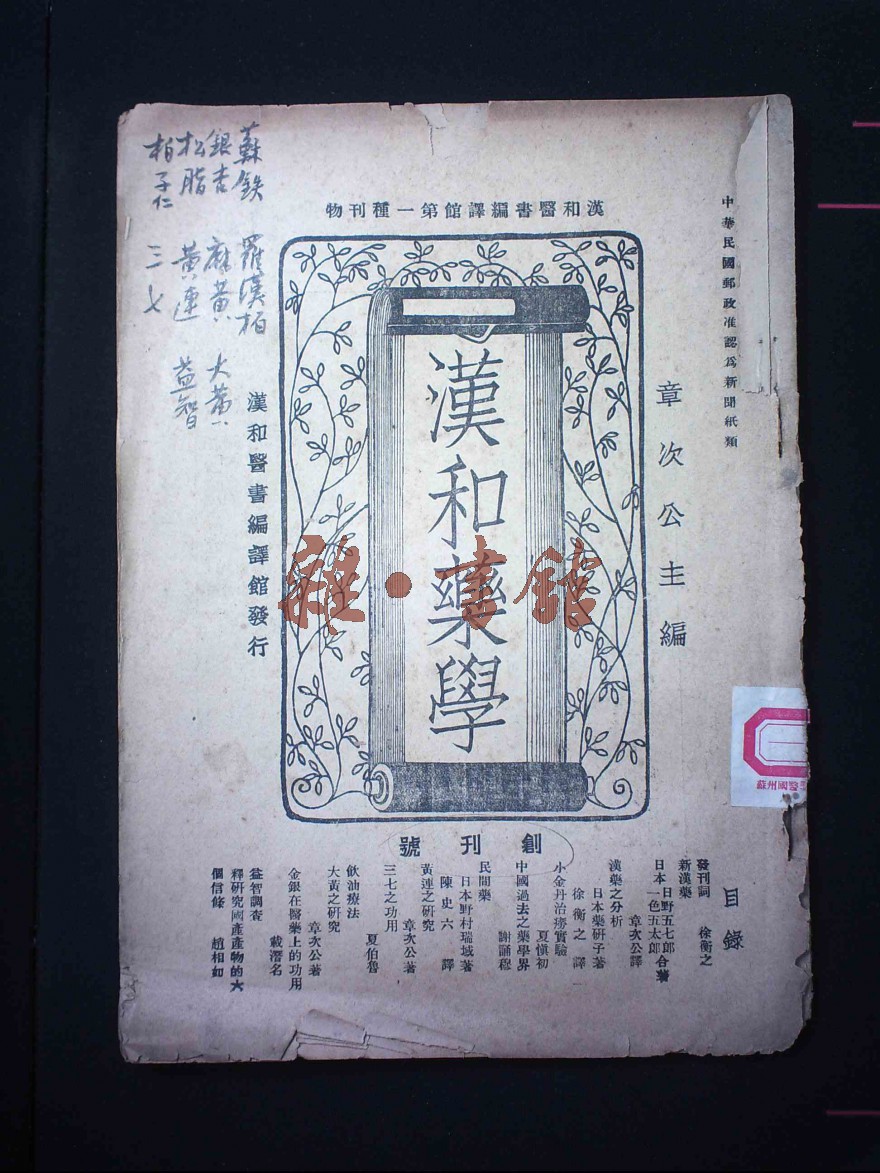 漢和醫書編譯館第一種刊物
中華民國郵政准認爲新聞紙類
章次公主編
漢和藥學
漢和醫書編譯館發行
創刊號
目錄
發刊詞 徐衡之
新漢藥
日本日野五七郎合著
日本一色五太郎
章次公譯
漢藥之分析
日本藥研子著
徐衡之譯
小金丹治癆實驗
夏愼初
中國過去之藥學界
謝誦穆
民間藥
日本野村瑞域著
陳史六譯
黃連之研究
章次公著
三七之功用
夏伯魯
飲油療法
大黃之研究
章次公著
金銀在醫藥上的功用
益智調查
戴潛名
釋研究國產產物的六
個信條 趙相如
蘇鉄 羅漢柏
銀杏 麻黃 大黃
松脂 黃連 益智
柏子仁 三七
雜·書館
蘇州國醫